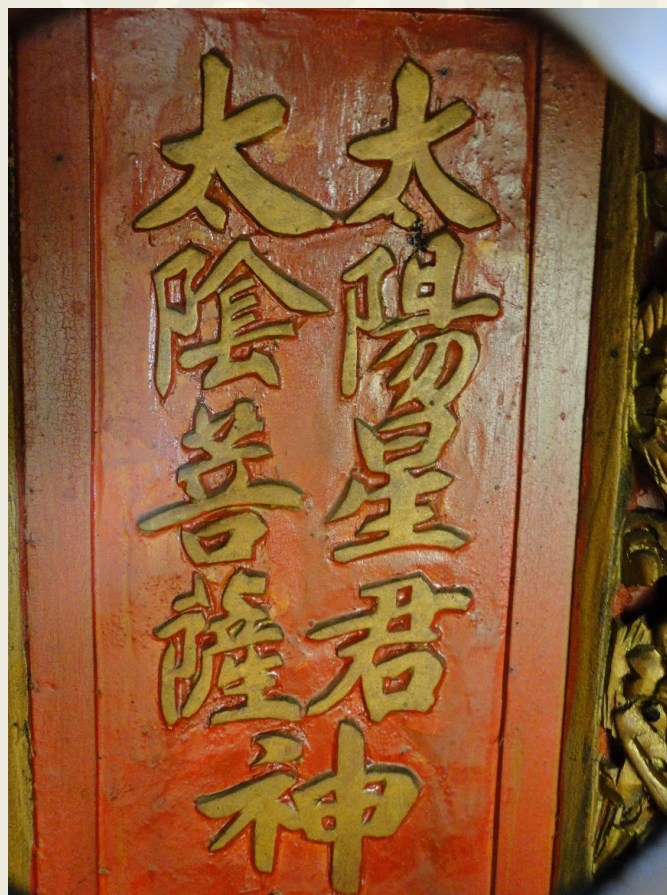 太陽星君
太陰菩薩
神